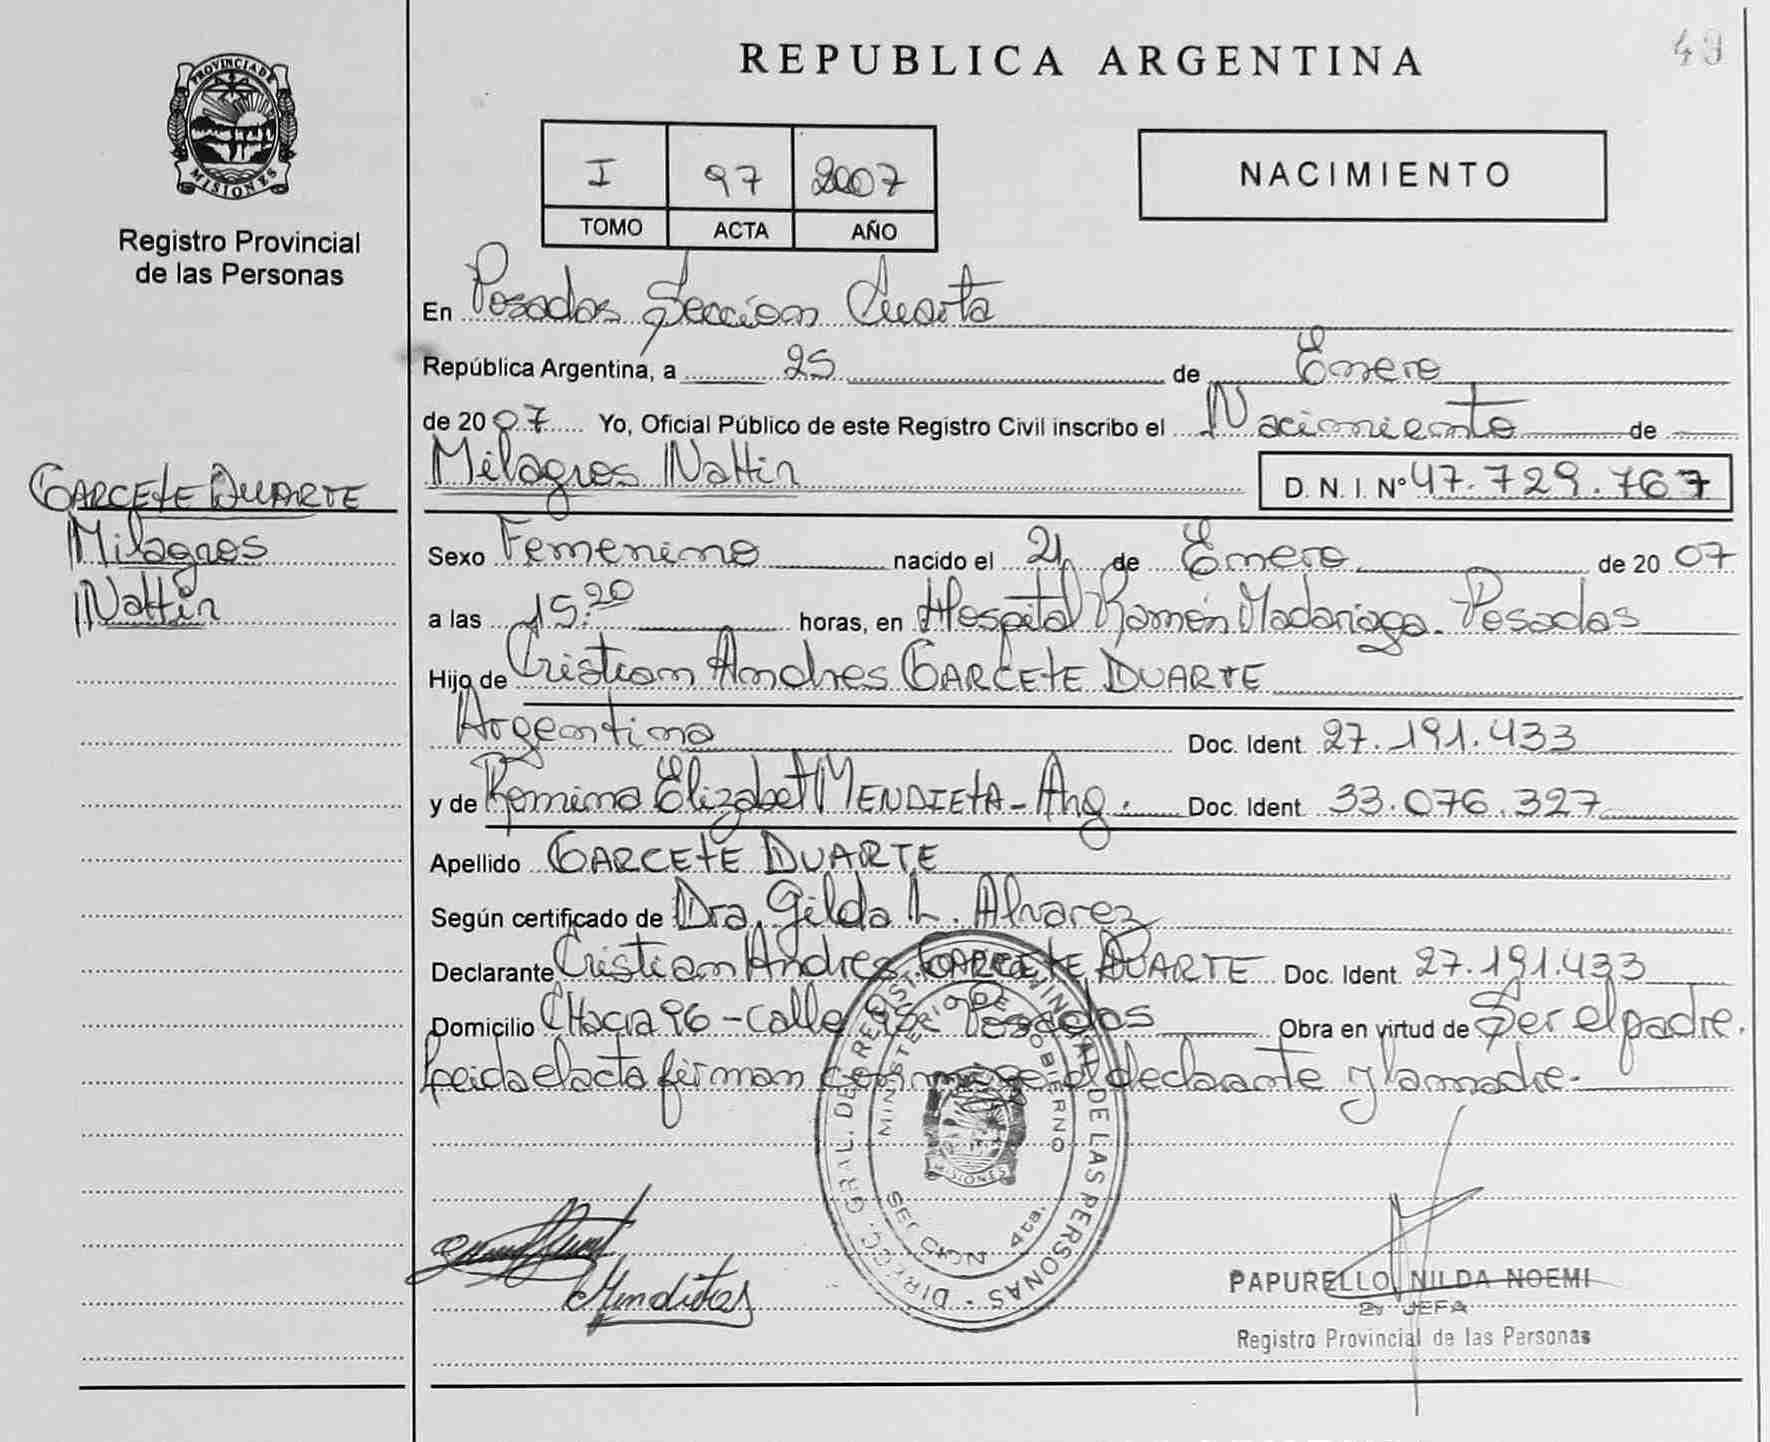 49
REPUBLICA ARGENTINA
PROVINCIA DE MISIONES
Registro Provincial
de las Personas
I 97 2007
TOMO ACTA AÑO
NACIMIENTO
En Posadas Sección Cuarta
República Argentina, a 25 de Enero
de 2007 Yo, Oficial Público de este Registro Civil inscribo el Nacimiento de
Milagros Nattin D. N. I. Nº 47.729.767
GARCETE DUARTE
Milagros
Nattin
Sexo Femenino nacido el 21 de Enero de 20 07
a las 15.20 horas, en Hospital Ramón Madariaga. Posadas
Hijo de Cristian Andres GARCETE DUARTE
Argentino Doc. Ident. 27.191.433
y de Romina Elizabet MENDIETA - Arg. Doc. Ident. 33.076.327
Apellido GARCETE DUARTE
Según certificado de Dra. Gilda L. Alvarez
Declarante Cristian Andres GARCETE DUARTE Doc. Ident. 27.191.433
Domicilio CHacra 96 - calle Posadas Obra en virtud de Ser el padre.
Leida el acta firman conmigo el declarante y la madre.
DIRECC. GRAL. DE REGISTRO PROVINCIAL DE LAS PERSONAS
MINISTERIO DE GOBIERNO
MISIONES
SECCION 4ta.
PAPURELLO NILDA NOEMI
JEFA
Registro Provincial de las Personas